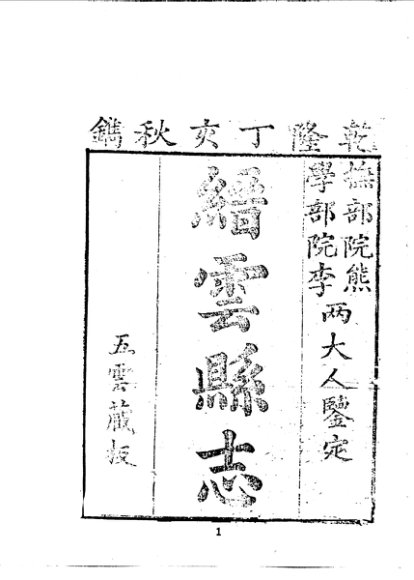 乾隆丁亥秋鐫
撫部院熊
學部院李
两大人鑒定
縉雲縣志
五雲藏板
1